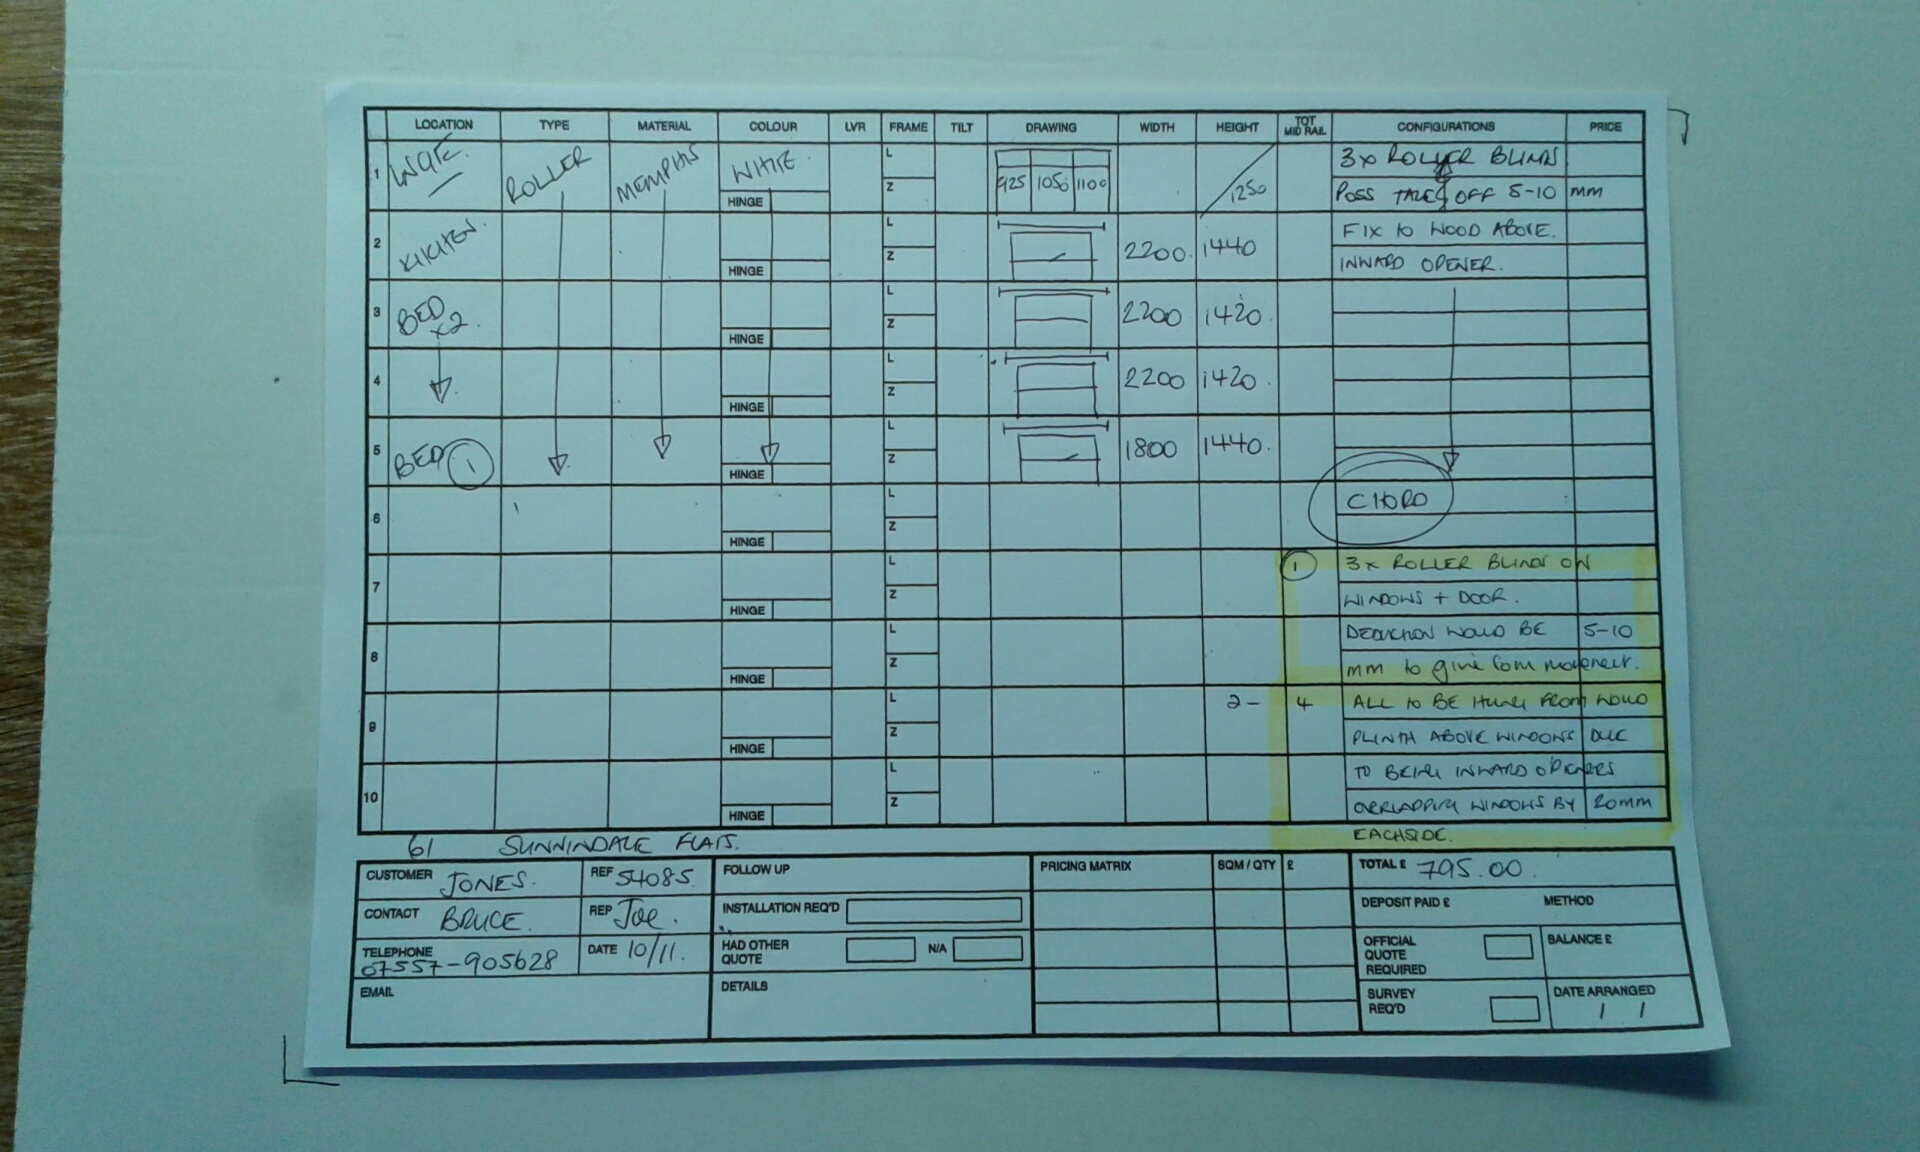 LOCATION TYPE MATERIAL COLOUR LVR FRAME TILT DRAWING WIDTH HEIGHT TOT MID RAIL CONFIGURATIONS PRICE
1 ROLLER MEMPHIS WHITE L 3x ROLLER BLINDS
HINGE Z 925 1050 1100 1250 POSS TAKE OFF 5-10 mm
2 KITCHEN L 2200 1440 FIX to WOOD ABOVE.
HINGE Z INWARD OPENER.
3 BED x2. L 2200 1420
HINGE Z
4 L 2200 1420
HINGE Z
5 BED 1 L 1800 1440
HINGE Z
6 L
HINGE Z
7 L 1 3x ROLLER BLINDS ON
HINGE Z WINDOWS + DOOR.
8 L DEDUCTION WOULD BE 5-10
HINGE Z mm to give movement.
9 L 2- 4 ALL to BE HUNG FROM WOOD
HINGE Z PLINTH ABOVE WINDOWS DUE
10 L TO BEING INWARD OPENERS
HINGE Z OVERLAPPING WINDOWS BY 20mm
EACHSIDE.
61 SUNNINDALE FLATS.
CUSTOMER JONES. REF 54085 FOLLOW UP PRICING MATRIX SQM / QTY £ TOTAL £ 795.00.
CONTACT BRUCE. REP Joe. INSTALLATION REQ'D DEPOSIT PAID £ METHOD
TELEPHONE 07557-905628 DATE 10/11. HAD OTHER QUOTE N/A OFFICIAL QUOTE REQUIRED BALANCE £
EMAIL DETAILS SURVEY REQ'D DATE ARRANGED / /